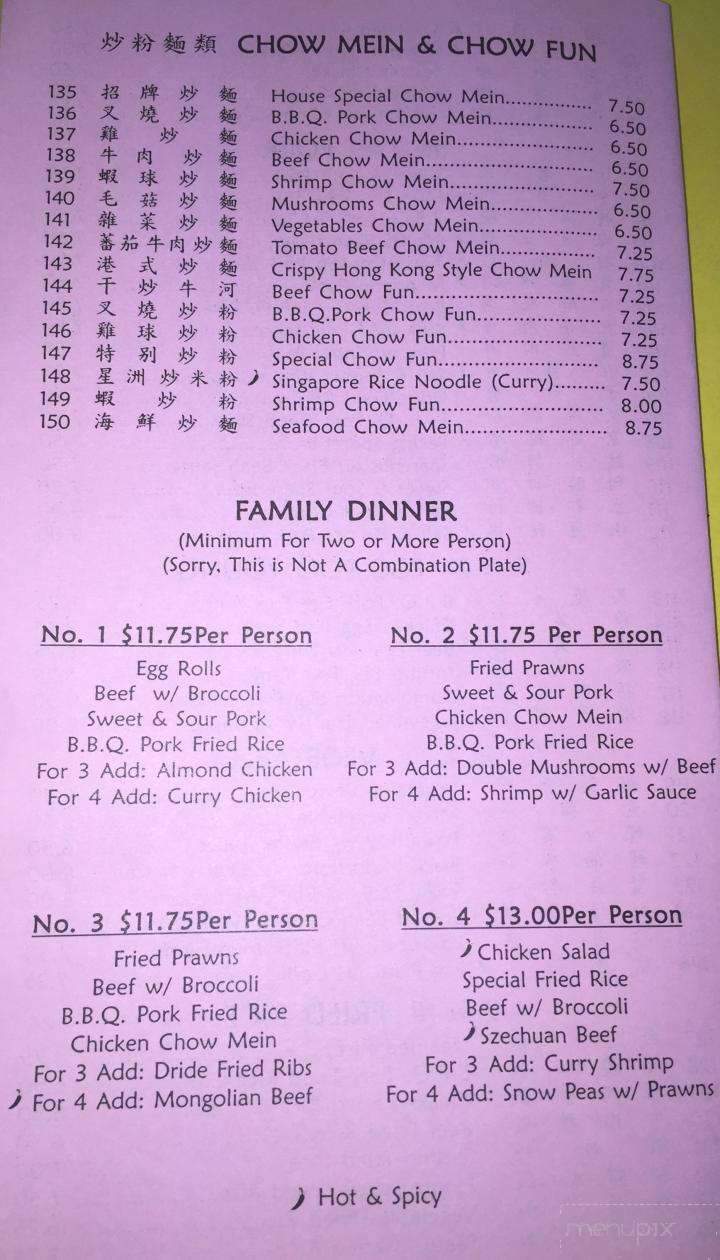 炒粉麵類 CHOW MEIN & CHOW FUN
135 招牌炒麵 House Special Chow Mein................ 7.50
136 叉燒炒麵 B.B.Q. Pork Chow Mein................... 6.50
137 雞炒麵 Chicken Chow Mein......................... 6.50
138 牛肉炒麵 Beef Chow Mein............................... 6.50
139 蝦球炒麵 Shrimp Chow Mein........................... 7.50
140 毛菇炒麵 Mushrooms Chow Mein.................... 6.50
141 雜菜炒麵 Vegetables Chow Mein..................... 6.50
142 蕃茄牛肉炒麵 Tomato Beef Chow Mein................. 7.25
143 港式炒麵 Crispy Hong Kong Style Chow Mein 7.75
144 干炒牛河 Beef Chow Fun.................................. 7.25
145 叉燒炒粉 B.B.Q.Pork Chow Fun....................... 7.25
146 雞球炒粉 Chicken Chow Fun............................ 7.25
147 特别炒粉 Special Chow Fun............................. 8.75
148 星洲炒米粉 Singapore Rice Noodle (Curry)......... 7.50
149 蝦炒粉 Shrimp Chow Fun............................. 8.00
150 海鮮炒麵 Seafood Chow Mein......................... 8.75
FAMILY DINNER
(Minimum For Two or More Person)
(Sorry, This is Not A Combination Plate)
No. 1 $11.75Per Person
Egg Rolls
Beef w/ Broccoli
Sweet & Sour Pork
B.B.Q. Pork Fried Rice
For 3 Add: Almond Chicken
For 4 Add: Curry Chicken
No. 2 $11.75 Per Person
Fried Prawns
Sweet & Sour Pork
Chicken Chow Mein
B.B.Q. Pork Fried Rice
For 3 Add: Double Mushrooms w/ Beef
For 4 Add: Shrimp w/ Garlic Sauce
No. 3 $11.75Per Person
Fried Prawns
Beef w/ Broccoli
B.B.Q. Pork Fried Rice
Chicken Chow Mein
For 3 Add: Dride Fried Ribs
For 4 Add: Mongolian Beef
No. 4 $13.00Per Person
Chicken Salad
Special Fried Rice
Beef w/ Broccoli
Szechuan Beef
For 3 Add: Curry Shrimp
For 4 Add: Snow Peas w/ Prawns
Hot & Spicy
menupix